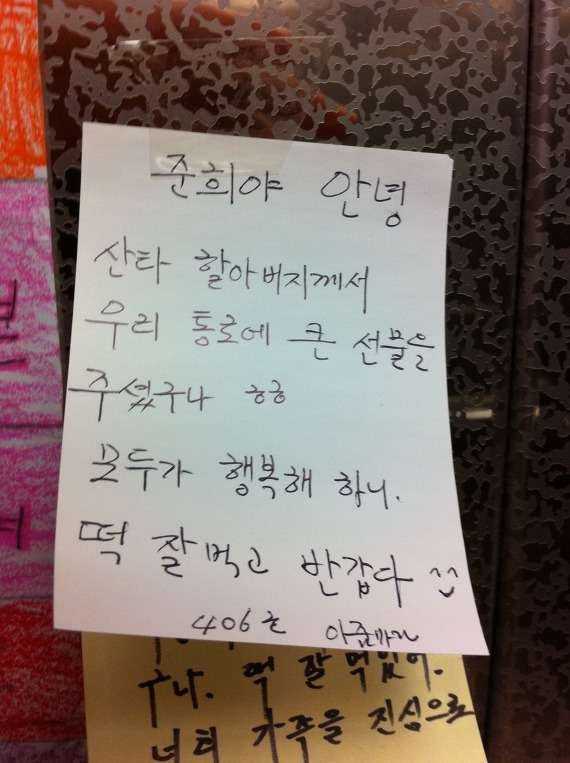 준희야 안녕
산타 할아버지께서
우리 통로에 큰 선물을
주셨구나 ㅎㅎ
모두가 행복해 하니.
떡 잘 먹고 반갑다 ^^
406호 아줌마가
구나. 떡 잘 먹었어.
너희 가족을 진심으로